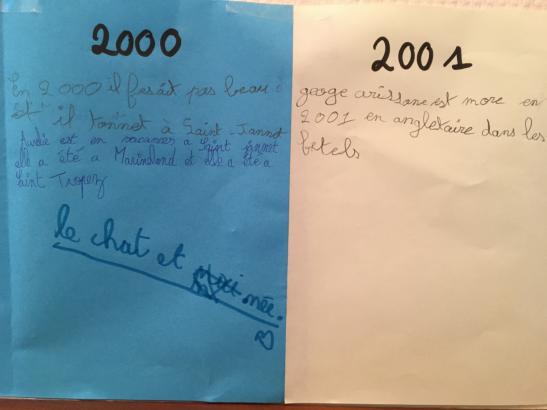 2000
En 2000 il fesait pas beau
et il tonnet à Saint-Jannet
Aurélie est en vacances a Saint jannet
elle a été a Marineland et elle a été a
Saint Tropez
le chat et née.
2001
george arissone est more en
2001 en angletaire dans les
betels